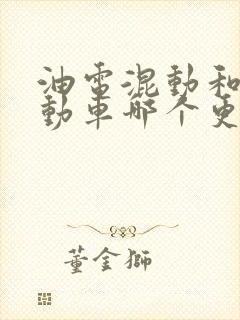 油電混動和
動車哪个更
董金獅